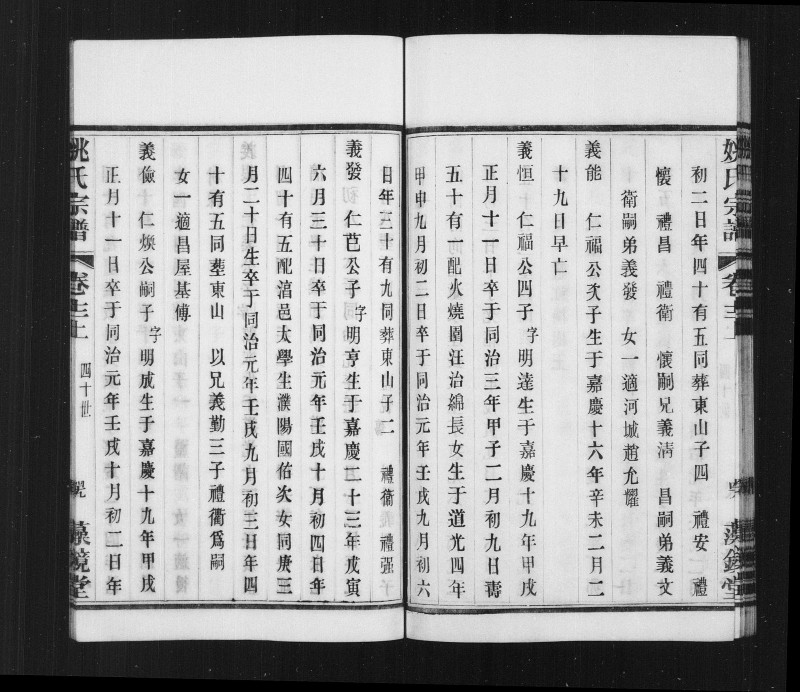 姚氏宗譜
卷三上
藻鏡堂
初二日年四十有五同葬東山子四 禮安 禮
懷 禮昌 禮衛 懷嗣兄義清 昌嗣弟義文
衛嗣弟義發 女一適河城趙允耀
義能 仁福公次子生于嘉慶十六年辛未二月二
十九日早亡
義恒 仁福公四子字明達生于嘉慶十九年甲戌
正月十一日卒于同治三年甲子二月初九日壽
五十有一配火燒園汪治綿長女生于道光四年
甲申九月初二日卒于同治元年壬戌九月初六
日年三十有九同葬東山子二 禮衛 禮强
義發 仁芑公子字明亨生于嘉慶二十三年戊寅
六月三十日卒于同治元年壬戌十月初四日年
四十有五配涫邑太學生濮陽國佑次女同庚三
月二十日生卒于同治元年壬戌九月初三日年四
十有五同塟東山 以兄義勤三子禮衢為嗣
女一適昌屋基傅
義儉 仁燦公嗣子字明成生于嘉慶十九年甲戌
正月十一日卒于同治元年壬戌十月初二日年
姚氏宗譜
卷三上
四十世
藻鏡堂